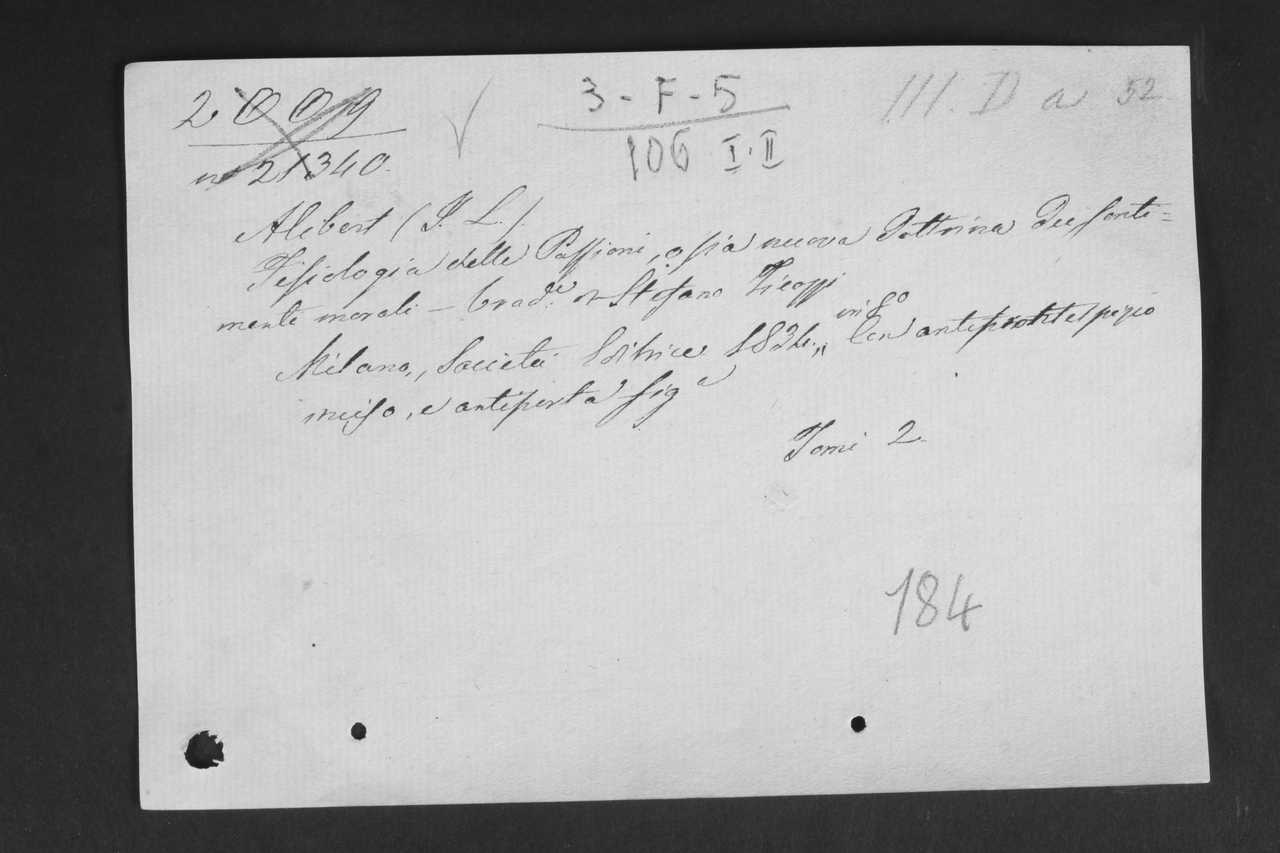 2009
n° 21340.
3 - F - 5
106 I. II
III. D a 52
Alibert (J. L.)
Fisiologia delle Passioni, ossia nuova Dottrina dei senti=
mente morali — trad.e Stefano Ticozzi
Milano, Società Editrice 1834,, in 8° Con antifrontespizio
inciso, e antiporta fig.a
Tomi 2.
184